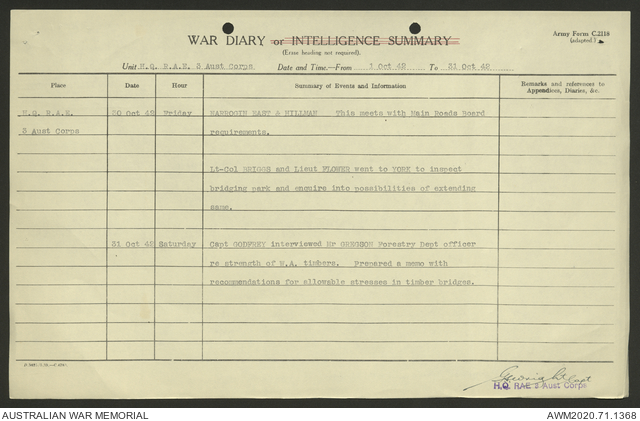 Army Form C.2118
(adapted)
WAR DIARY or INTELLIGENCE SUMMARY
(Erase heading not required).
Unit H.Q. R.A.E. 3 Aust Corps Date and Time—From 1 Oct 42 To 31 Oct 42
Place Date Hour Summary of Events and Information Remarks and references to Appendices, Diaries, &c.
H.Q. R.A.E. 30 Oct 42 Friday NARROGIN EAST & HILLMAN This meets with Main Roads Board
3 Aust Corps requirements.
Lt-Col BRIGGS and Lieut FLOWER went to YORK to inspect
bridging park and enquire into possibilities of extending
same.
31 Oct 42 Saturday Capt GODFREY interviewed Mr GREGSON Forestry Dept officer
re strength of W.A. timbers. Prepared a memo with
recommendations for allowable stresses in timber bridges.
Capt
H.Q. RAE 3 Aust Corps
AUSTRALIAN WAR MEMORIAL AWM2020.71.1368